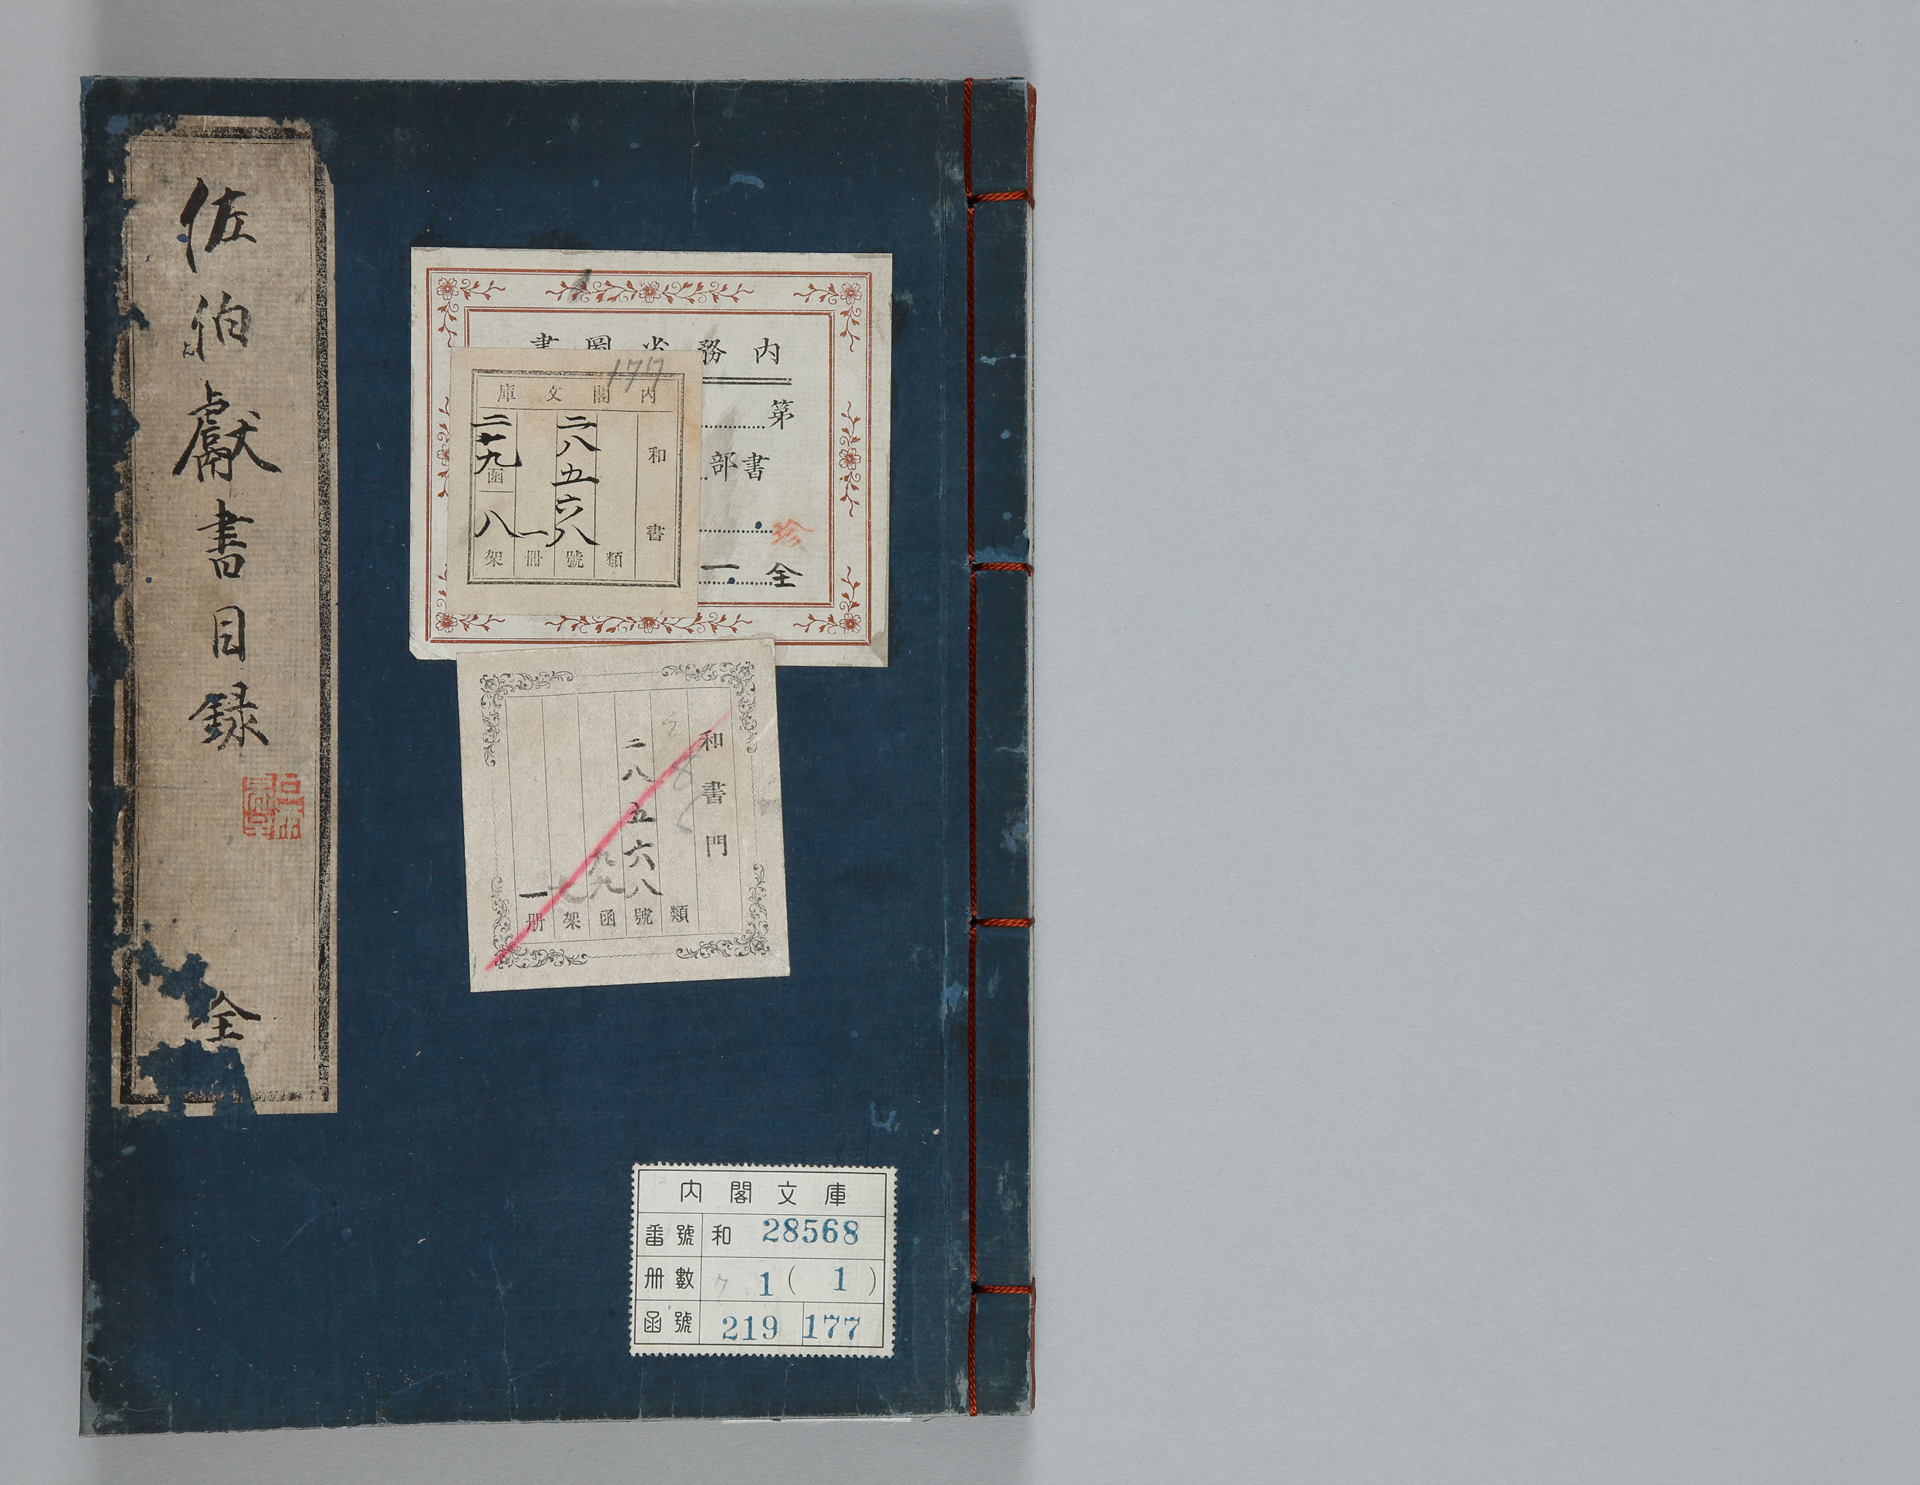 佐伯獻書目録
全
内務省圖書
第
書部
珍
全一
177
内閣文庫
和書
類
二八五六八號
一冊
函
八架
和書門
類
二八五六八號
函
架
一册
内閣文庫
番號 和 28568
冊數 1 ( 1 )
函號 219 177